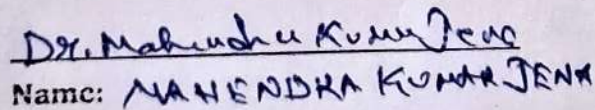 Dr. Mahendra Kumar Jena
Name: MAHENDRA KUMAR JENA